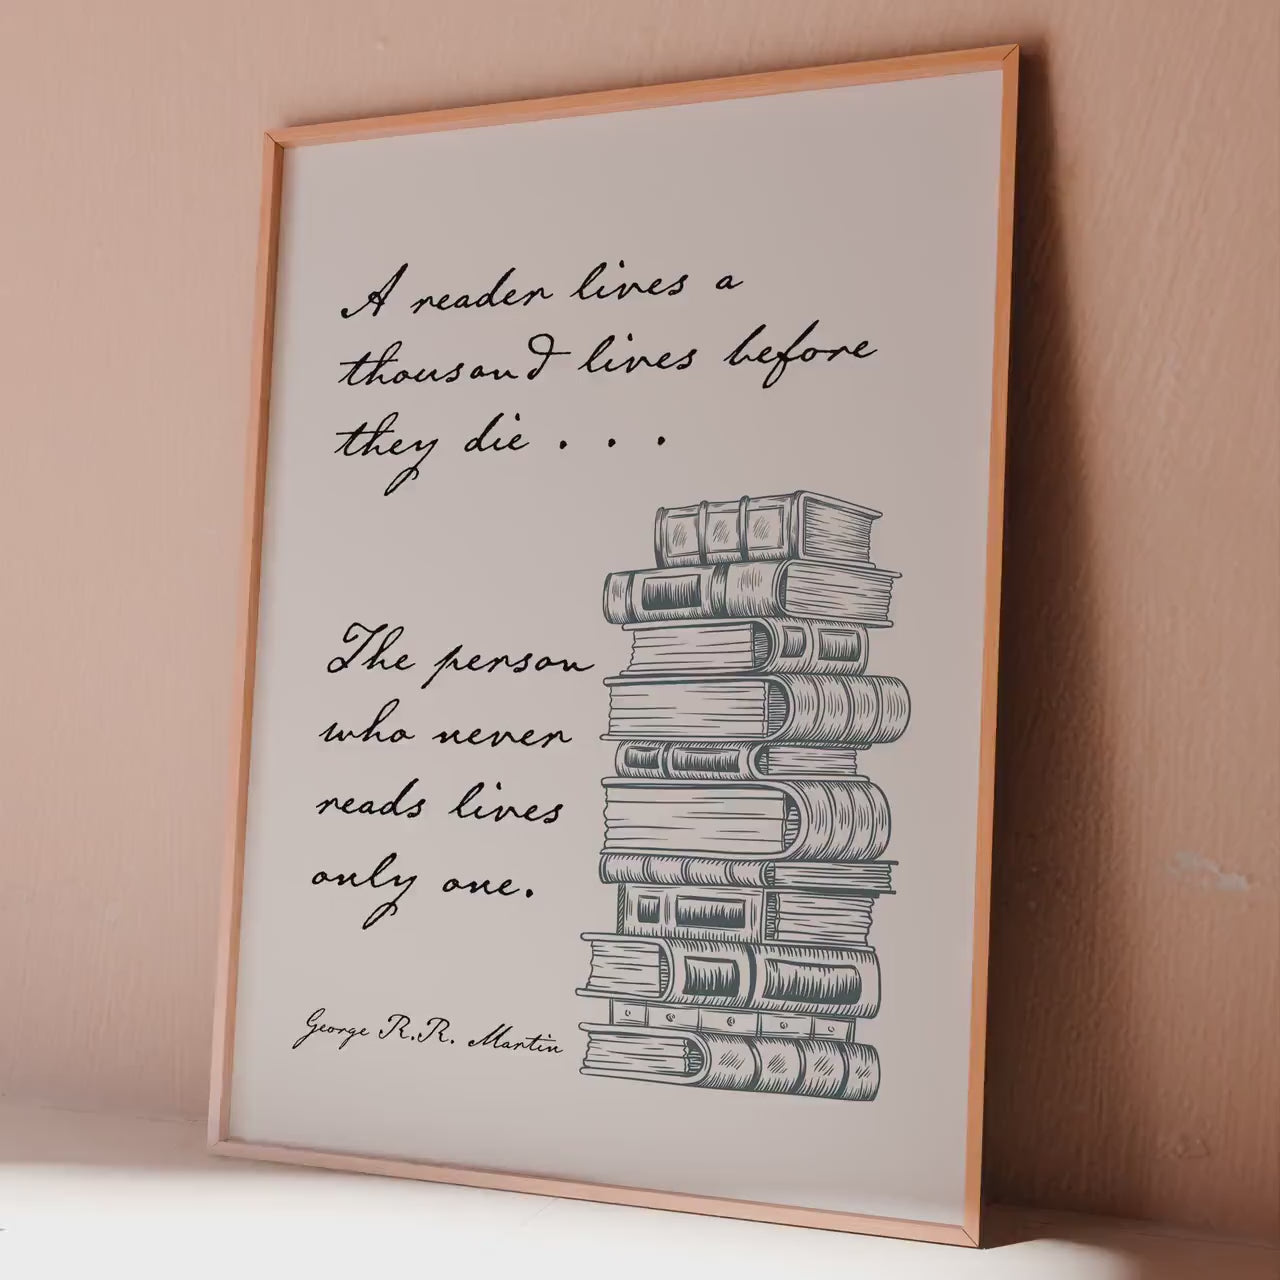 A reader lives a
thousand lives before
they die . . .
The person
who never
reads lives
only one.
George R.R. Martin